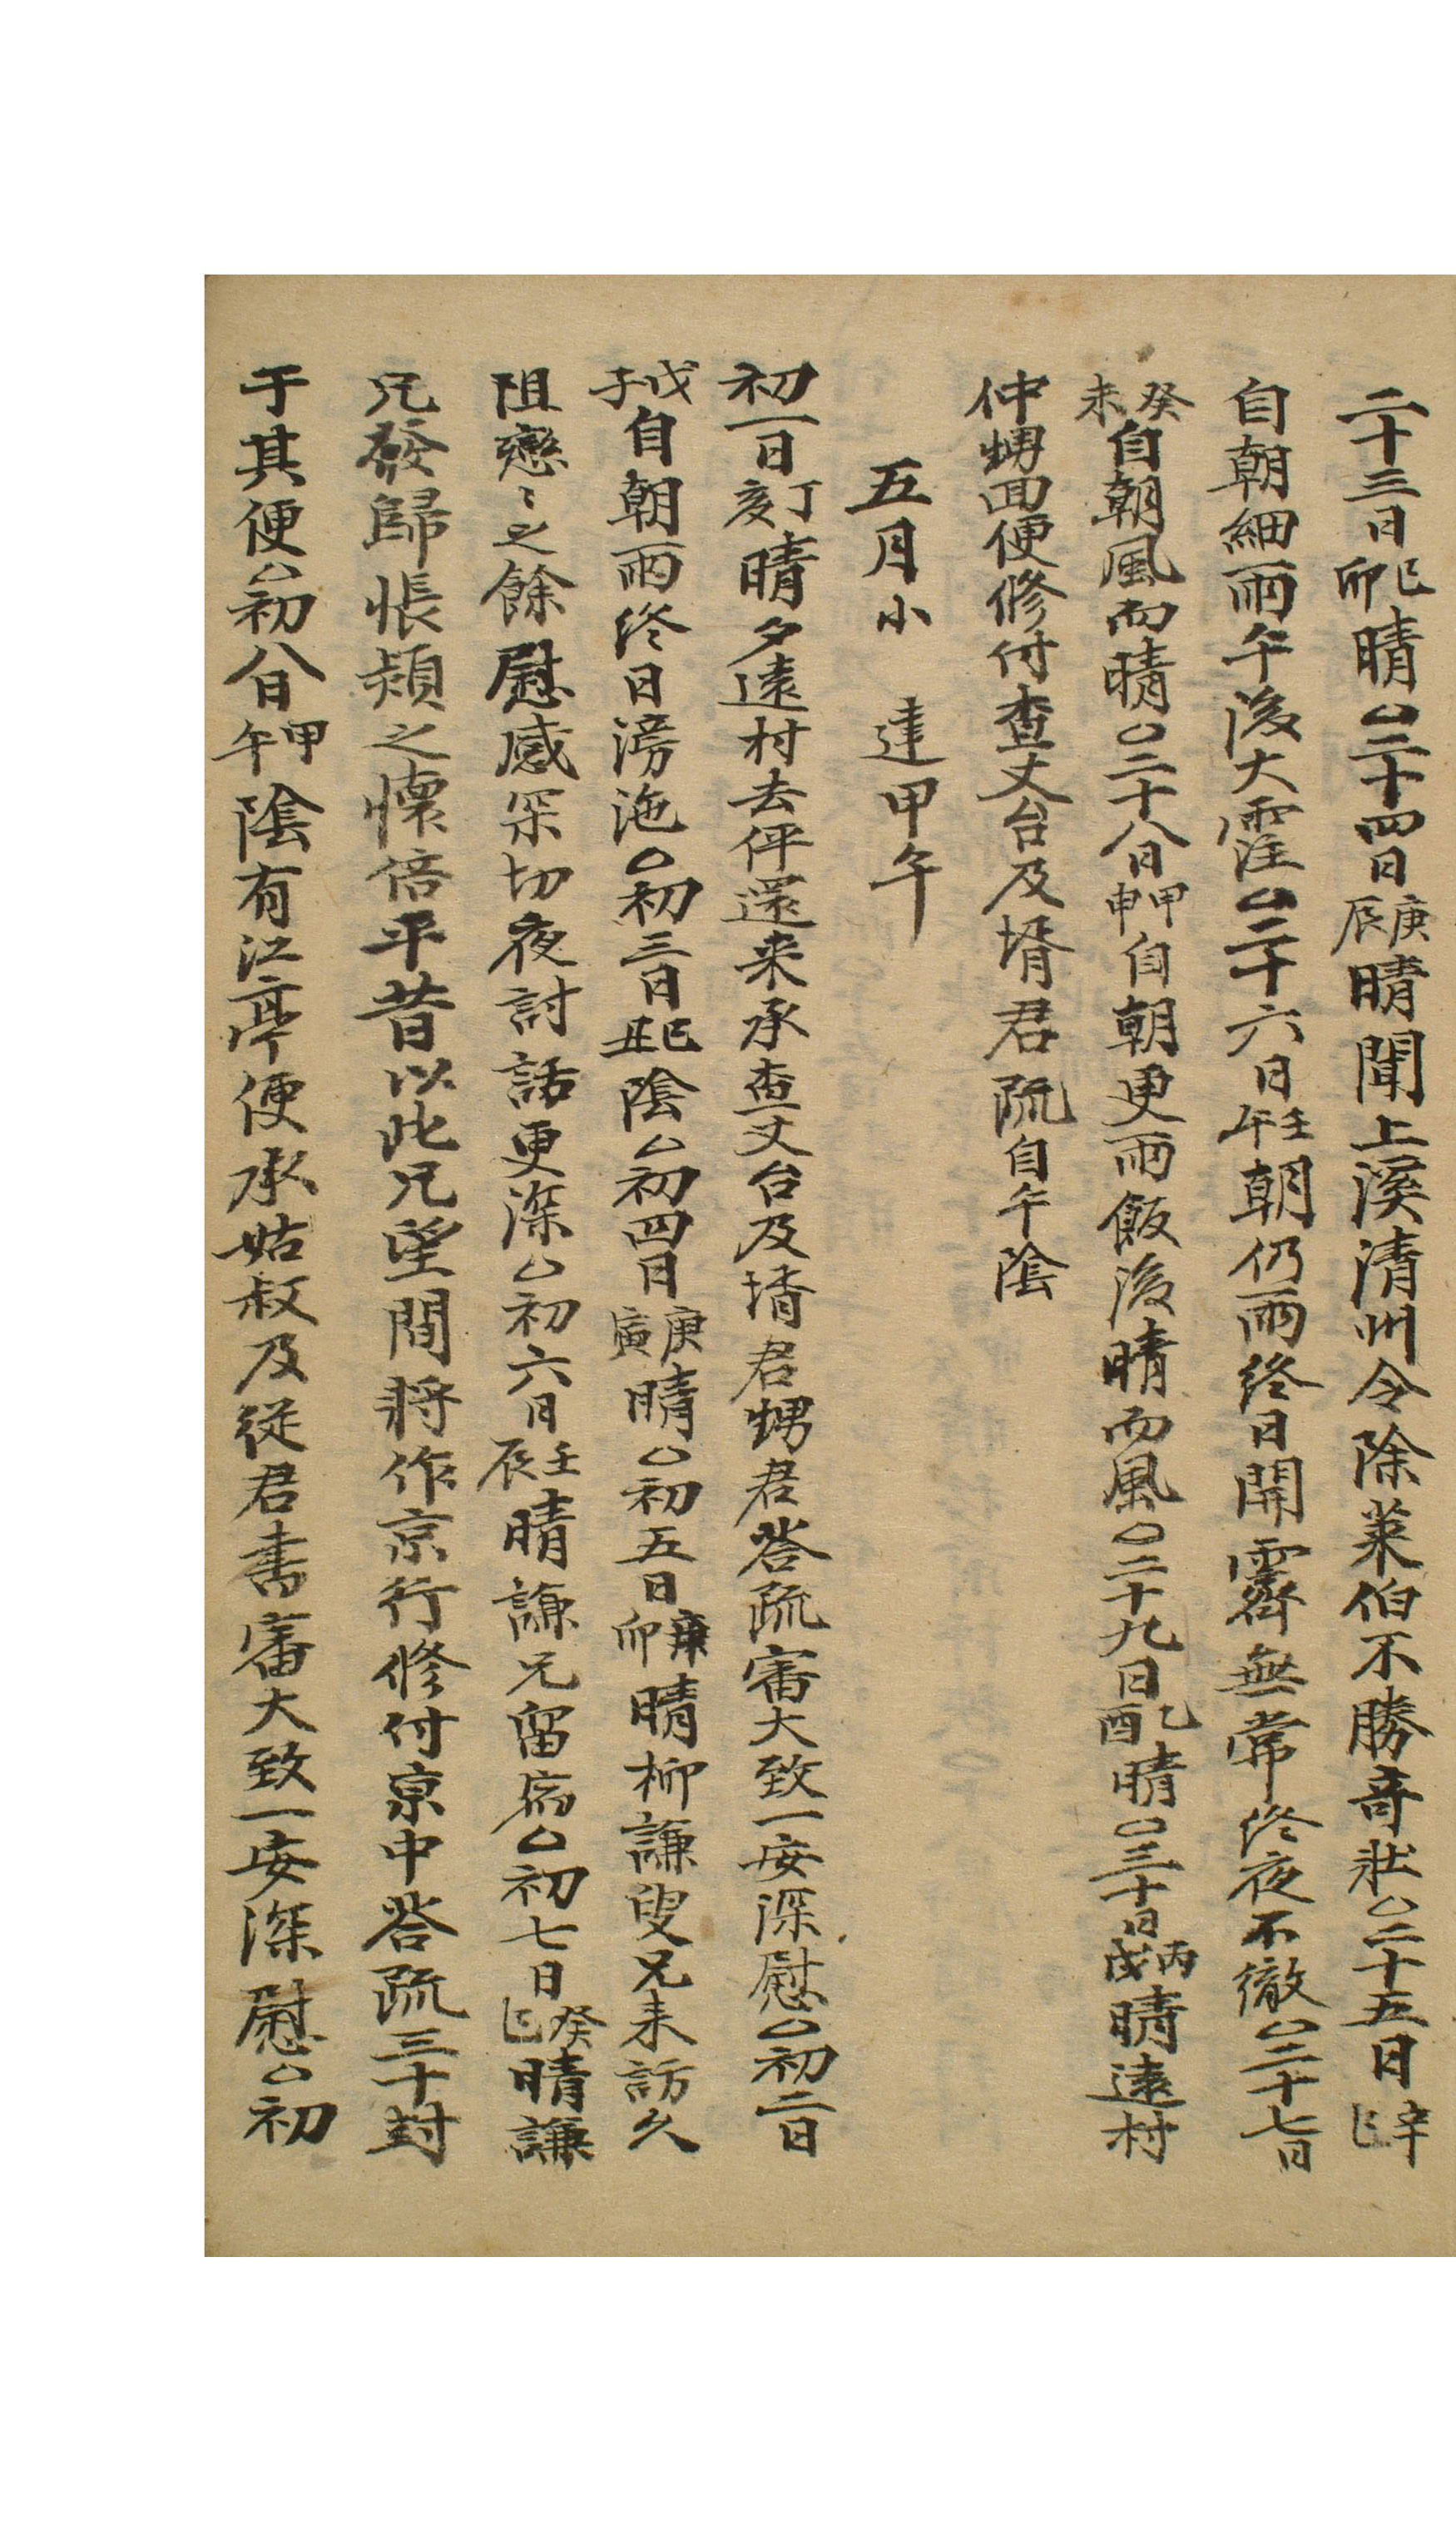 二十三日己卯晴○二十四日庚辰晴聞上溪清州令除萊伯不勝奇壯○二十五日辛巳
自朝細雨午後大霔○二十六日壬午朝仍雨終日開霽無常終夜不徹○二十七日
癸未自朝風而晴○二十八日甲申自朝更雨飯後晴而風○二十九日乙酉晴○三十日丙戌晴遠村
仲甥回便修付查丈台及壻君疏自午陰
五月小 建甲午
初一日丁亥晴夕遠村去伻還来承查丈台及壻君甥君答疏審大致一安深慰○初二日
戊子自朝雨終日滂沱○初三日己丑陰○初四日庚寅晴○初五日辛卯晴柳謙叟兄来訪久
阻戀〻之餘慰感深切夜討話更深○初六日壬辰晴謙兄留病○初七日癸巳晴謙
兄發歸悵頻之懷倍平昔以此兄望間將作京行修付京中答疏三十封
于其便○初八日甲午陰有江亭便承姑叔及從君書審大致一安深慰○初